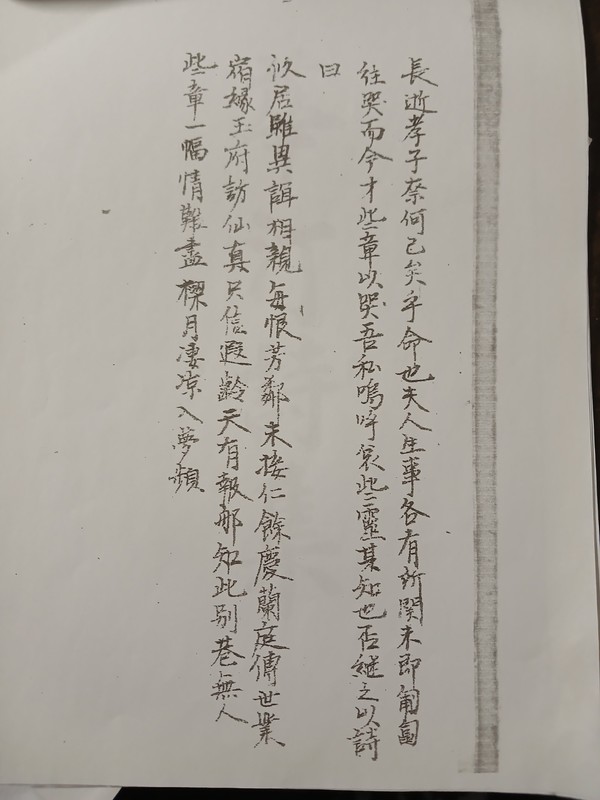 長逝孝子奈何已矣乎命也夫人生事各有所関未即匍匐
往哭而今才些章以哭吾私嗚呼哀些靈其知也否継之以詩
曰
泒居雖異誼相親每恨芳鄰未接仁餘慶蘭庭傳世業
宿緣玉府訪仙真只信遐齡天有報那知此别巷無人
些章一幅情難盡樑月凄凉入夢頻